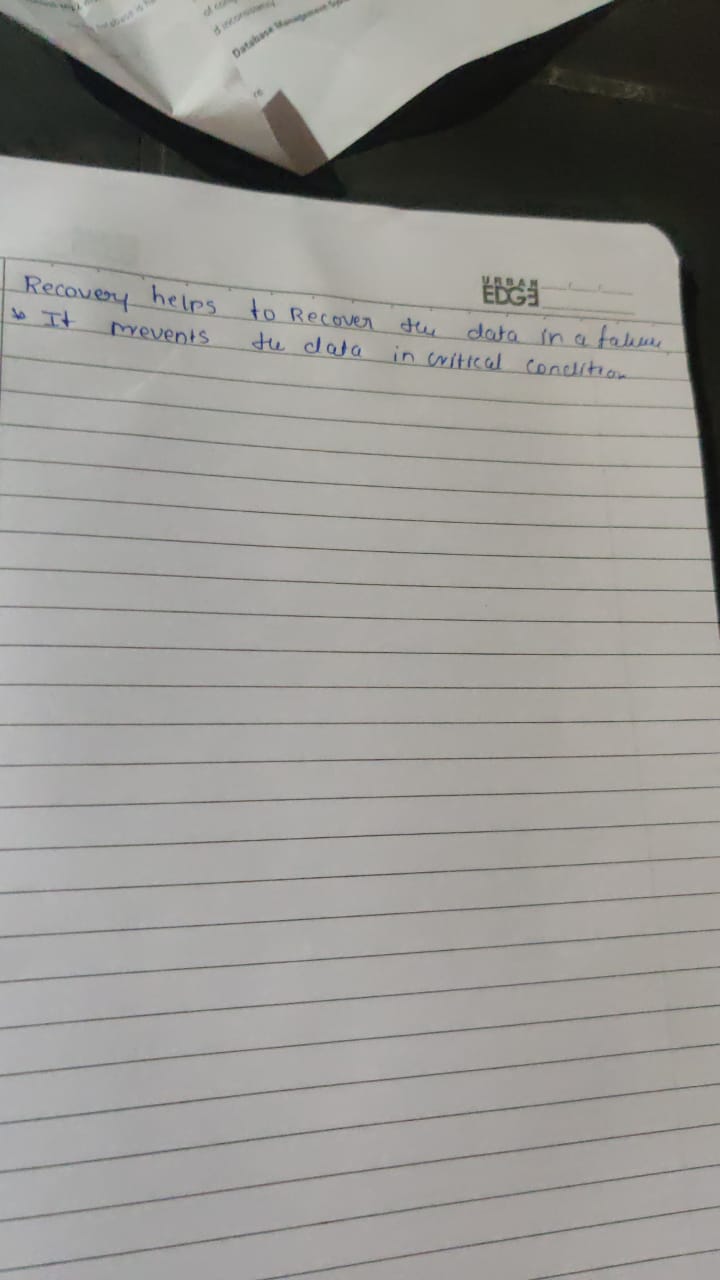 Database Management Sys
URBAN
EDGE
Recovery helps to Recover the data in a failure
It prevents the data in critical condition